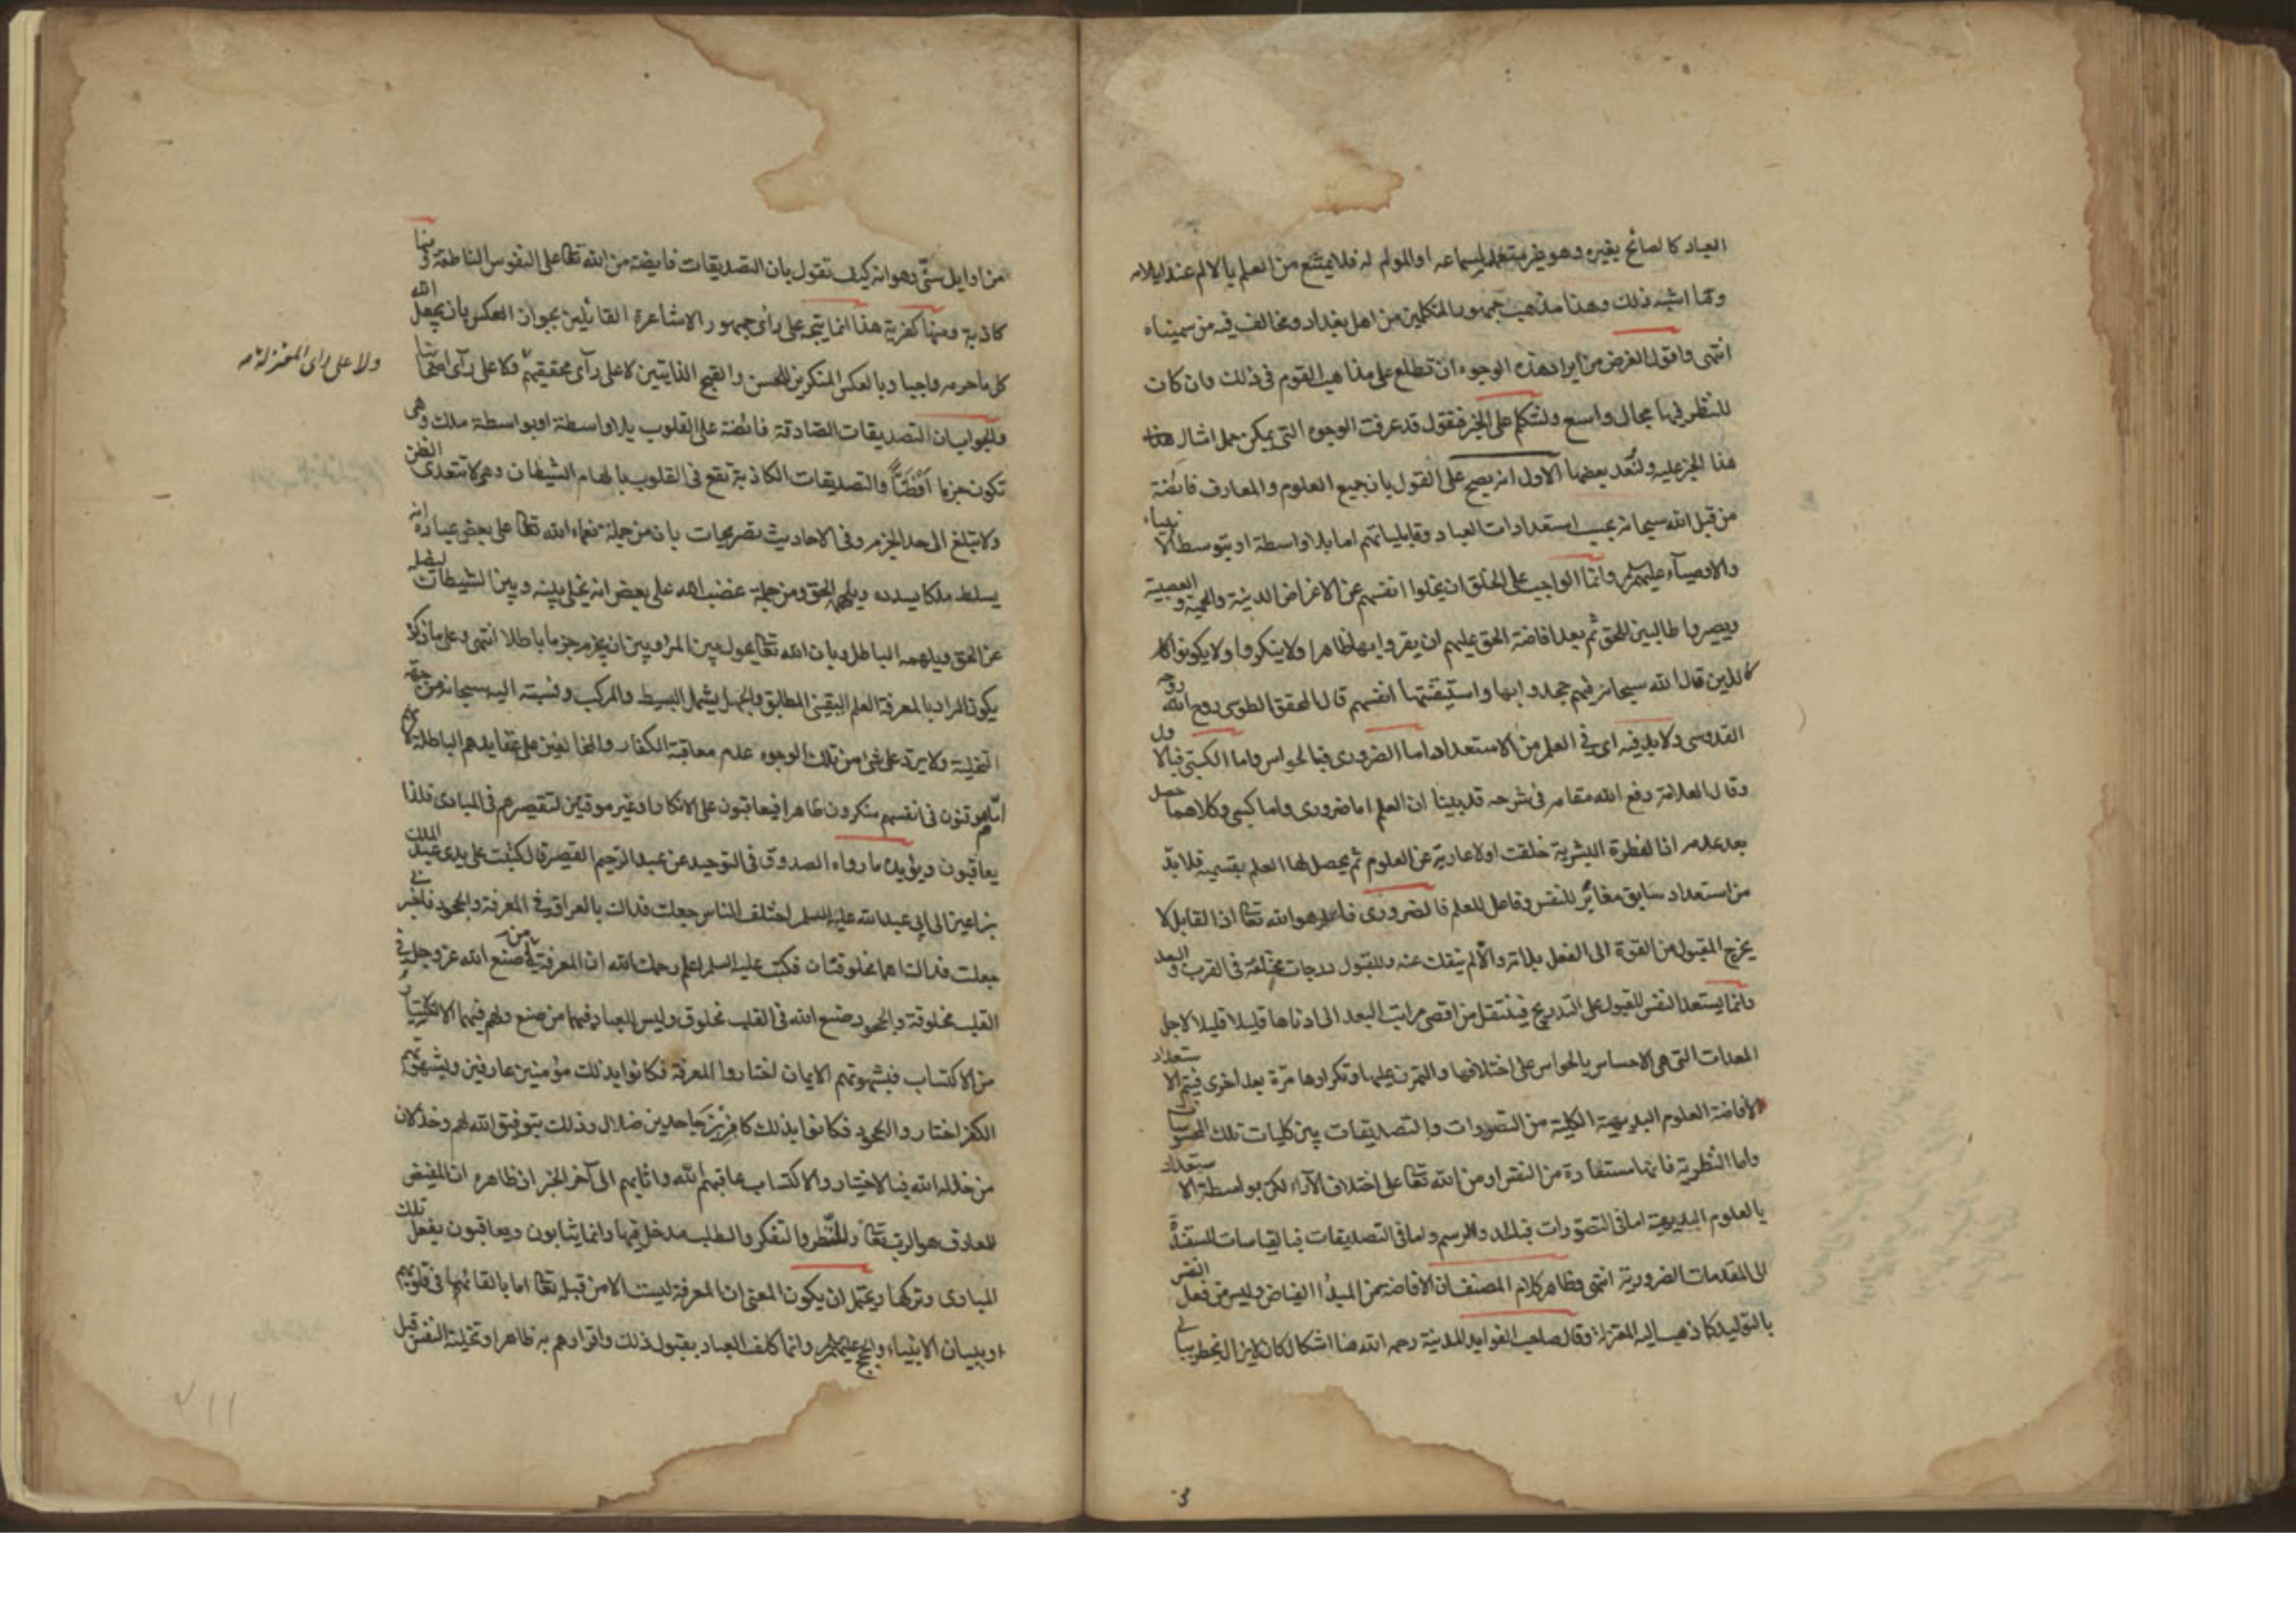 العباد كالصائح بغيره وهو غير متعمد لسماعه او المولم له فلا يمتنع من العلم بالالم عند ايلامه
وما اشبه ذلك وهذا مذهب جمهور المتكلمين من اهل بغداد ومخالف فيه من سميناه
انتهى واقول الغرض من ايراد هذه الوجوه ان تطلع على مذاهب القوم في ذلك وان كان
للنظر فيها مجال واسع ولنتكلم على الخبر فنقول قد عرفت الوجوه التي يمكن حمل امثال هذا
هذا الخبر عليه ولنعد بعضها الاول انه يصح على القول بان جميع العلوم والمعارف فائضة
من قبل الله سبحانه بحسب استعدادات العباد وقابلياتهم اما بلا واسطة او بتوسط الانبياء
والاوصياء عليهم السلم وانما الواجب على الخلق ان يخلوا انفسهم عن الاغراض الدنية والحمية والعصبية
ويصيروا طالبين للحق ثم بعد افاضة الحق عليهم ان يقروا بها ظاهرا ولا ينكروا ولا يكونوا كا
كالذين قال الله سبحانه فيهم جحدوا بها واستيقنتها انفسهم قال المحقق الطوسي روح الله روحه
القدوسي ولا بد فيه اي في العلم من الاستعداد اما الضروري فبالحواس واما الكسبي فبالاول
وقال العلامة رفع الله مقامه في شرحه قد بينا ان العلم اما ضروري واما كسبي وكلاهما حصل
بعد عدمه اذ الفطرة البشرية خلقت اولا عارية عن العلوم ثم يحصل لها العلم بقسميه فلا بد
من استعداد سابق مغاير للنفس وفاعل للعلم فالضروري فاعله هو الله تعالى اذ القابل لا
يخرج المقبول من القوة الى الفعل بذاته والا لم ينفك عنه وللقبول درجات مختلفة في القرب والبعد
وانما يستعد النفس للقبول على التدريج فينتقل من اقصى مراتب البعد الى ادناها قليلا قليلا لاجل
المعدات التي هي الاحساس بالحواس على اختلافها والتمرن عليها وتكرارها مرة بعد اخرى فيتم الاستعداد
لافاضة العلوم البديهية الكلية من التصورات والتصديقات بين كليات تلك المحسوسات
واما النظرية فانها مستفادة من النفس او من الله تعالى على اختلاف الآراء لكن بواسطة الاستعداد
بالعلوم البديهية اما في التصورات فبالحد والرسم واما في التصديقات فبالقياسات المستندة
الى المقدمات الضرورية انتهى وظاهر كلام المصنف ان الافاضة من المبدأ الفياض وليس من فعل النفس
بالتوليد كما ذهب اليه المعتزلة وقال صاحب الفوايد المدنية رحمه الله هنا اشكال كان لا يزال يخطر ببالي
من اوايل سني وهو انه كيف تقول بان التصديقات فايضة من الله تعالى على النفوس الناطقة ومنها
كاذبة ومنها كفرية هذا انما يتجه على رأي جمهور الاشاعرة القائلين بجواز العكس بان يجعل الله
كل ما حرمه واجبا وبالعكس المنكرين للحسن والقبح الذاتيين لا على رأي محققيهم ولا على رأي اصحابنا
ولا على راى المعتزلة منه
والجواب ان التصديقات الصادقة فائضة على القلوب بلا واسطة او بواسطة ملك وهي
تكون جزما او ظنا والتصديقات الكاذبة تقع في القلوب بالهام الشيطان وهي لا تتعدى الظن
ولا تبلغ الى حد الجزم وفي الاحاديث تصريحات بان من جملة نعماء الله تعالى على بعض عباده انه
يسلط ملكا يسدده ويلهمه الحق ومن جملة غضب الله على بعض انه يخلي بينه وبين الشيطان ليضله
عن الحق ويلهمه الباطل وبان الله تعالى يحول بين المرء وبين ان يجزم جزما باطلا انتهى وعلى ما ذكر
يكون المراد بالمعرفة العلم اليقيني المطابق والجهل يشمل البسيط والمركب ونسبته اليه سبحانه من جهة
التخلية ولا يرد على شئ من تلك الوجوه عدم معاقبة الكفار والمخالفين على عقايدهم الباطلة لانهم
اما موقنون في انفسهم منكرون ظاهرا فيعاقبون على الانكار او غير موقنين لتقصيرهم في المبادى فلذا
يعاقبون ويؤيده ما رواه الصدوق في التوحيد عن عبد الرحيم القصير قال كتبت على يدي عبد الملك
بن اعين الى ابي عبد الله عليه السلم اختلف الناس جعلت فداك بالعراق في المعرفة والجحود فاخبرني
جعلت فداك اهما مخلوقتان فكتب عليه السلم اعلم رحمك الله ان المعرفة من صنع الله عز وجل في
القلب مخلوقة والجحود صنع الله في القلب مخلوق وليس للعباد فيهما من صنع ولهم فيهما الاختيار
من الاكتساب فبشهوتهم الايمان اختاروا المعرفة فكانوا بذلك مؤمنين عارفين وبشهوتهم
الكفر اختاروا الجحود فكانوا بذلك كافرين جاحدين ضلال وذلك بتوفيق الله لهم وخذلان
من خذله الله فبالاختيار والاكتساب عاقبهم الله واثابهم الى آخر الخبر ان ظاهره ان المفيض
للمعارف هو الرب تعالى وللنظر والتفكر والطلب مدخل فيها وانما يثابون ويعاقبون بفعل تلك
المبادى وتركها ويحتمل ان يكون المعنى ان المعرفة ليست الا من قبله تعالى اما بالقائها في قلوبهم
او ببيان الانبياء والحجج عليهم السلم وانما كلف العباد بقبول ذلك واقرارهم به ظاهرا وتخلية النفس قبل